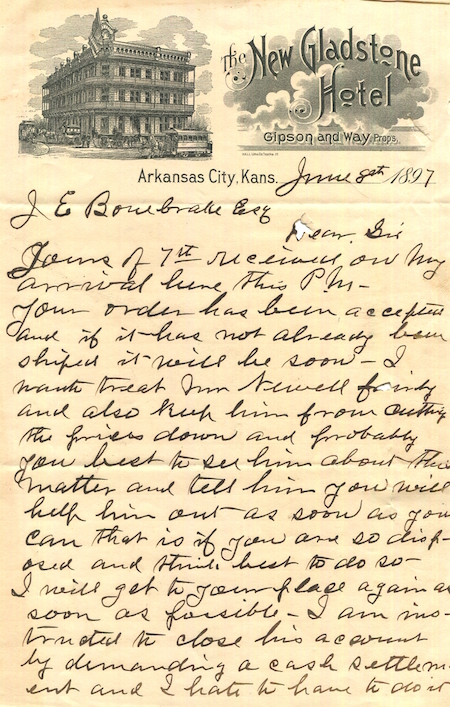 The New Gladstone
Hotel
Gipson and Way Props.
Arkansas City, Kans. June 8th 1897
J E Bonebrake Esq
Dear Sir
Yours of 7th received on my
arrival here this P.M-
Your order has been accepted
and if it has not already been
shiped it will be soon - I
want treat Mr Newell fairly
and also keep him from cutting
the prices down and probably
you best to see him about this
matter and tell him you will
help him out as soon as you
can that is if you are so disp-
osed and think best to do so-
I will get to your place again as
soon as possible - I am ins-
tructed to close his account
by demanding a cash settlem
ent and I hate to have to do it